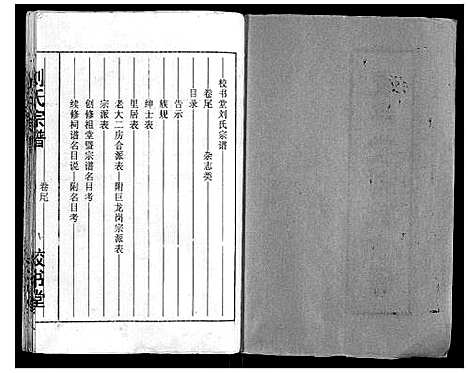 校书堂刘氏宗谱
卷尾 杂志类
目录
告示
族规
绅士表
里居表
老大二房合派表—附巨龙岗宗派表
宗派表
创修祖堂暨宗谱名目考
续修祠谱名目说—附名目考
刘氏宗谱
卷尾
校书堂